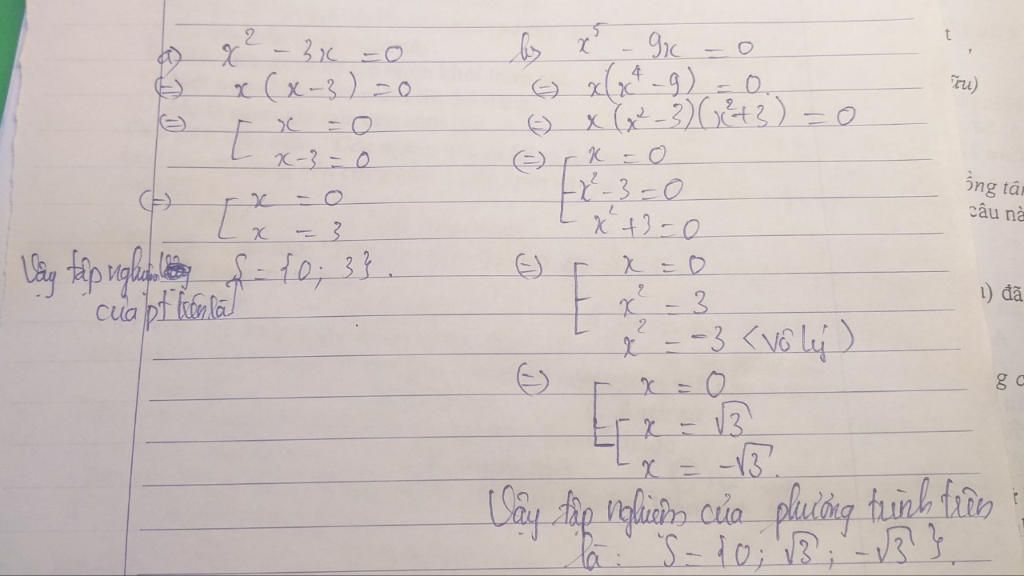 a) x² - 3x = 0
(=) x(x-3) = 0
(=) [ x = 0
x-3 = 0
(=) [ x = 0
x = 3
Vậy tập nghiệm S = {0; 3}.
của pt trên là
b) x⁵ - 9x = 0
(=) x(x⁴ - 9) = 0.
(=) x(x² - 3)(x²+3) = 0
(=) [ x = 0
x² - 3 = 0
x² + 3 = 0
(=) [ x = 0
x² = 3
x² = -3 (vô lý)
(=) [ x = 0
[ x = √3
x = -√3.
Vậy tập nghiệm của phương trình trên
là: S = {0; √3; -√3}.
t
,
ồng tâ
câu nà
ı) đã
g c